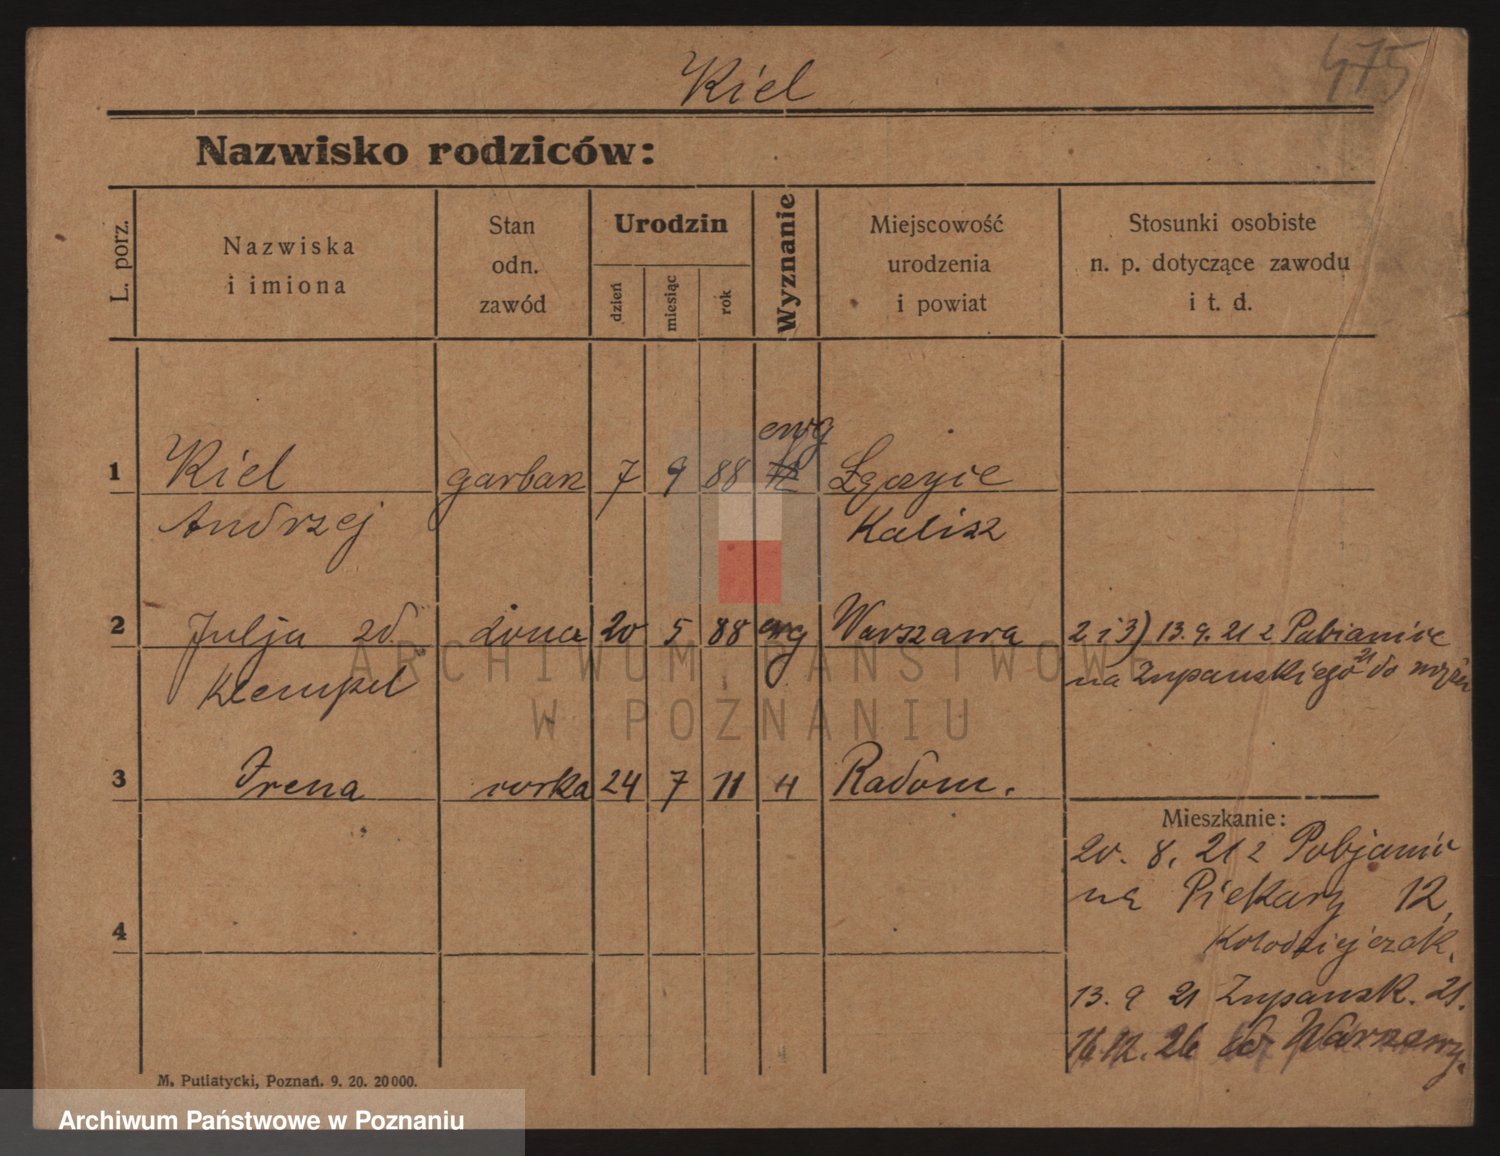 Kiel
475
Nazwisko rodziców:
L. porz.
Nazwiska i imiona
Stan odn. zawód
Urodzin
dzień
miesiąc
rok
Wyznanie
Miejscowość urodzenia i powiat
Stosunki osobiste n. p. dotyczące zawodu i t. d.
ewg
1 Kiel garbarz 7 9 88
Andrzej Kalisz
2 Julja zd żona 20 5 88 ewg Warszawa 2 i 3) 13. 9. 21 z Pabianice
na Zupanskiego 21 do męża
3 Irena córka 24 7 11 4 Radom.
Mieszkanie:
20. 8. 21 z Pobjanic
na Piekary 12,
4 Kołodziejczak.
13. 9 21 Zupansk. 21.
16.12. 26 do Warszawy.
M. Putiatycki, Poznań. 9. 20. 20000.
ARCHIWUM PAŃSTWOWE
W POZNANIU
Archiwum Państwowe w Poznaniu